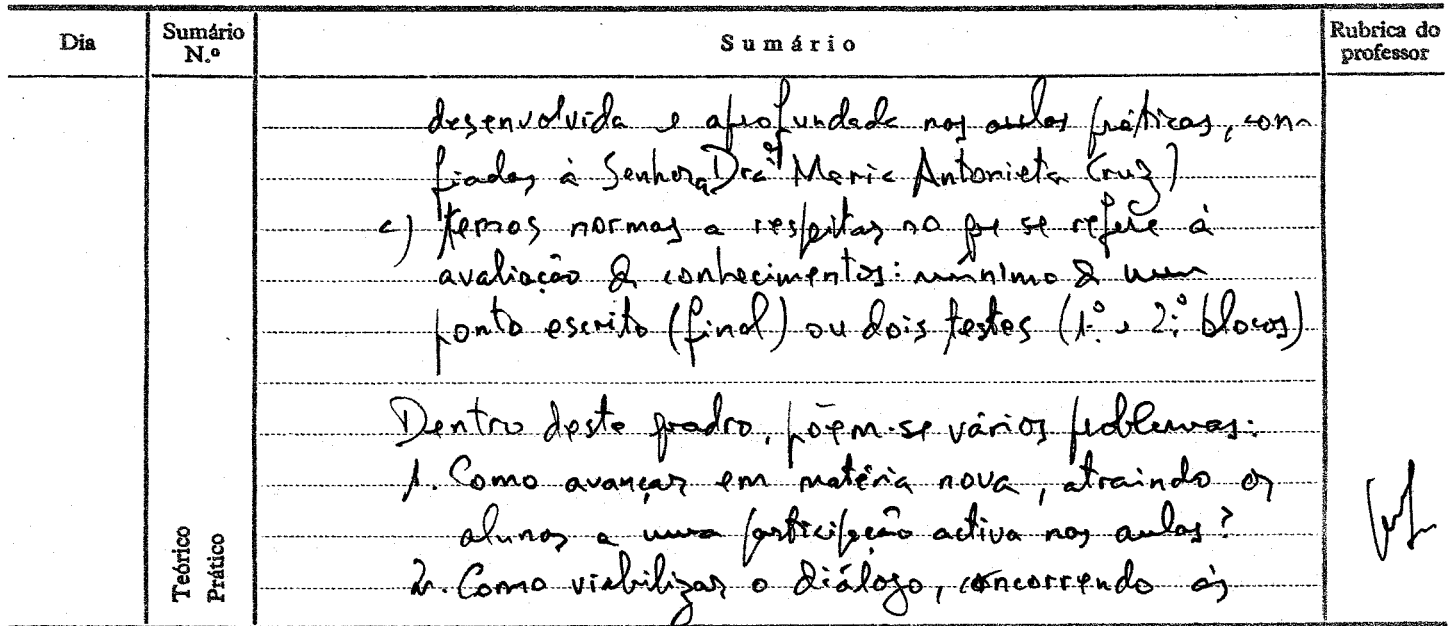 Dia
Sumário N.º
Sumário
Rubrica do professor
desenvolvida e aprofundada nas aulas práticas, con-
fiadas à Senhora Drª Maria Antonieta Cruz)
c) temos normas a respeitar no que se refere à
avaliação de conhecimentos: mínimo de um
ponto escrito (final) ou dois testes (1.º e 2.º blocos)
Dentro deste quadro, põem-se vários problemas:
1. Como avançar em matéria nova, atraindo os
alunos a uma participação activa nas aulas?
2. Como viabilizar o diálogo, concorrendo às
Teórico
Prático